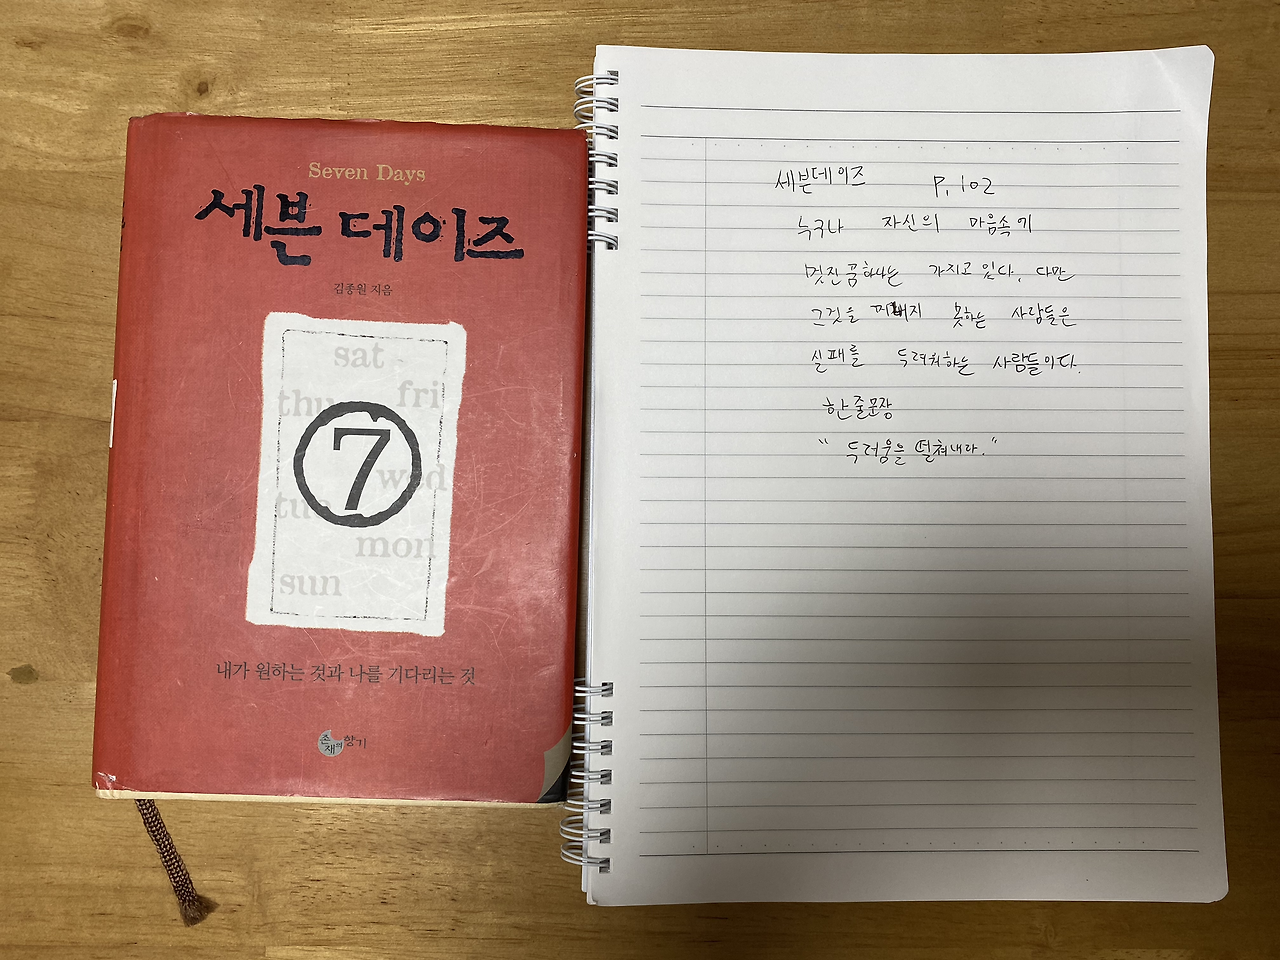 Seven Days
세븐 데이즈
김종원 지음
sat
fri
thu
7
wed
tue
mon
sun
내가 원하는 것과 나를 기다리는 것
존재의 향기
세븐데이즈 P. 102
누구나 자신의 마음속기
멋진꿈하나는 가지고 있다. 다만
그것을 못하는 사람들은
실패를 두려워하는 사람들이다.
한줄문장
"두려움을 떨쳐내라."